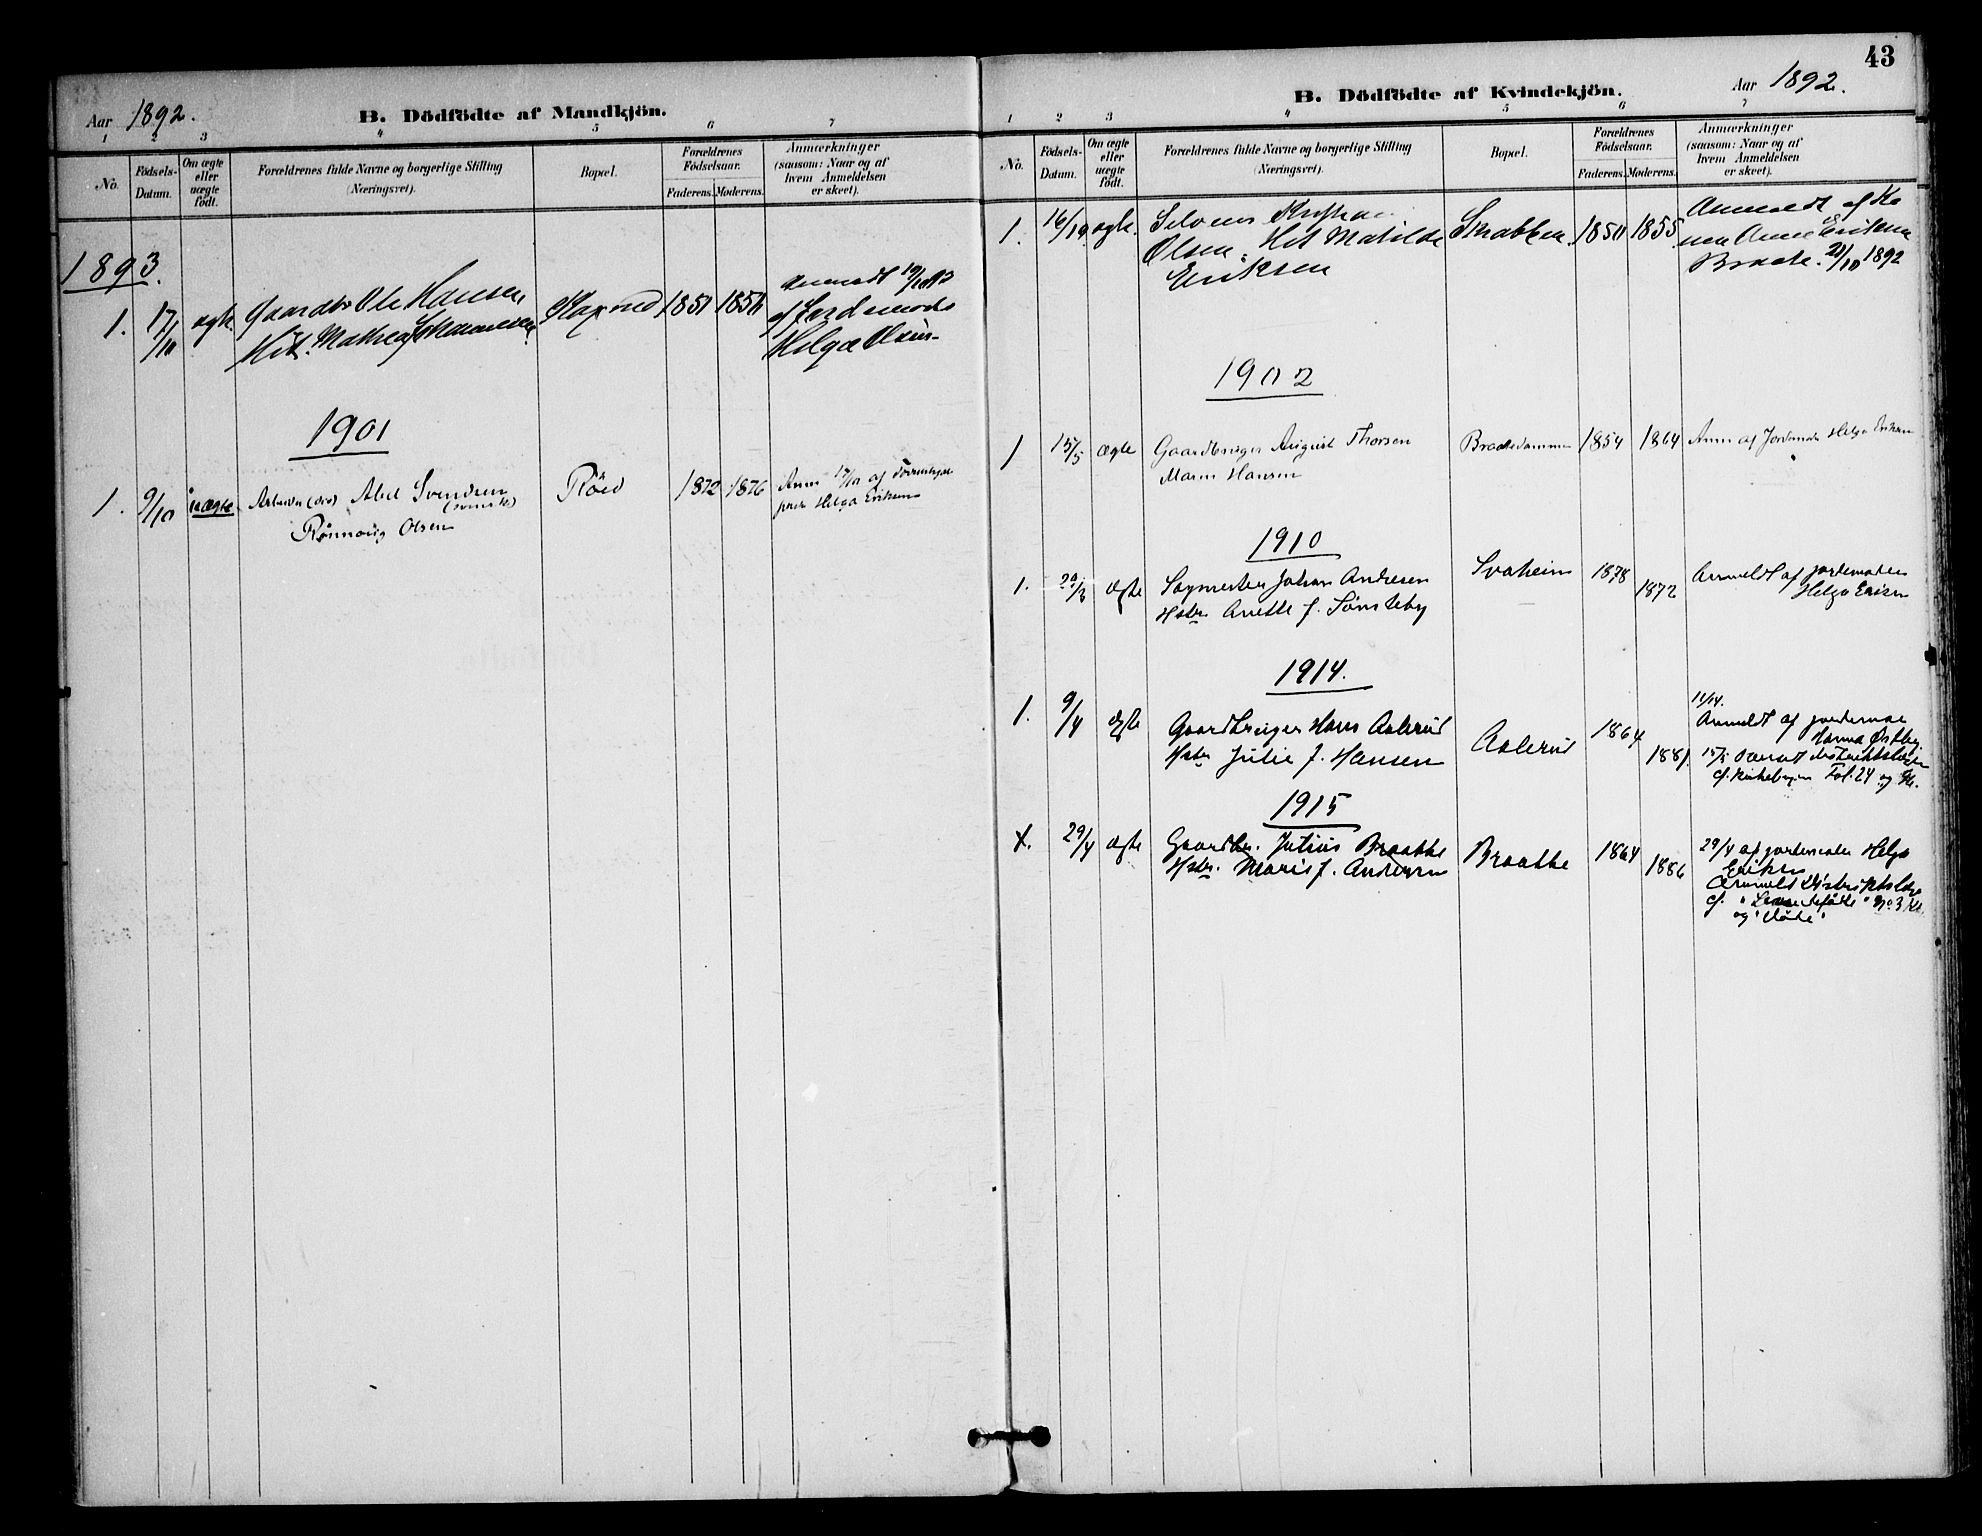 Aar 1892.
B. Dödfödte af Mandkjön.
1 2 3 4 5 6 7
No.
Födsels-
Datum.
Om ægte
eller
uægte
födt.
Forældrenes fulde Navne og borgerlige Stilling
(Næringsvei).
Bopæl.
Forældrenes
Födselsaar.
Faderens. Moderens.
Anmærkninger
(saasom: Naar og af
hvem Anmeldelsen
er skeet).
1893.
1. 17/10 ægte Gaardbr Ole Hansen 1851 1856 Anmeldt 19/10 93
Mathea Johannesen af Jordemoder
Helga Olsen
1901
1. 9/10 uægte Abel Svendsen Röed 1872 1876 Anm 17/10 af
(svensk) Helga Eriksen
Rønnaug Olsen
43
B. Dödfödte af Kvindekjön.
Aar 1892.
1 2 3 4 5 6 7
No.
Födsels-
Datum.
Om ægte
eller
uægte
födt.
Forældrenes fulde Navne og borgerlige Stilling
(Næringsvei).
Bopæl.
Forældrenes
Födselsaar.
Faderens. Moderens.
Anmærkninger
(saasom: Naar og af
hvem Anmeldelsen
er skeet).
1. 16/10 ægte. 1850 1855 Anmeldt af Ko
Olsen. Matilde nen Anne Eriksen
Eriksen Braate. 1892
1902
1 15/5 ægte Gaardbruger August Thorsen Braatedammen 1854 1864 Anm af Jordemoder Helga Eriksen
Maren Hansen
1910
1. ægte Sagmester Johan Andresen Svaheim 1878 Anmeldt af jordemoder
Hstru Anette f. Sønsteby 1872 Helga Eriksen
1914.
11/14.
1. 9/4 ægte Gaardbruger Hans Aalerud Aalerud 1864 Anmeldt af jordemor
Hstr Julie f. Hansen 1881. Hanna Østby.
cf. Kirkebogen Fol. 24 og
1915
1. 29/4 ægte Gaardbr. Julius Braathe Braathe 1864 29/4 af jordemoder Helga
Hstr. Marie f. Andersen 1886 Eriksen
Anmeldt Distriktslæge
cf. "Levendefödte" No 3
og "döde"